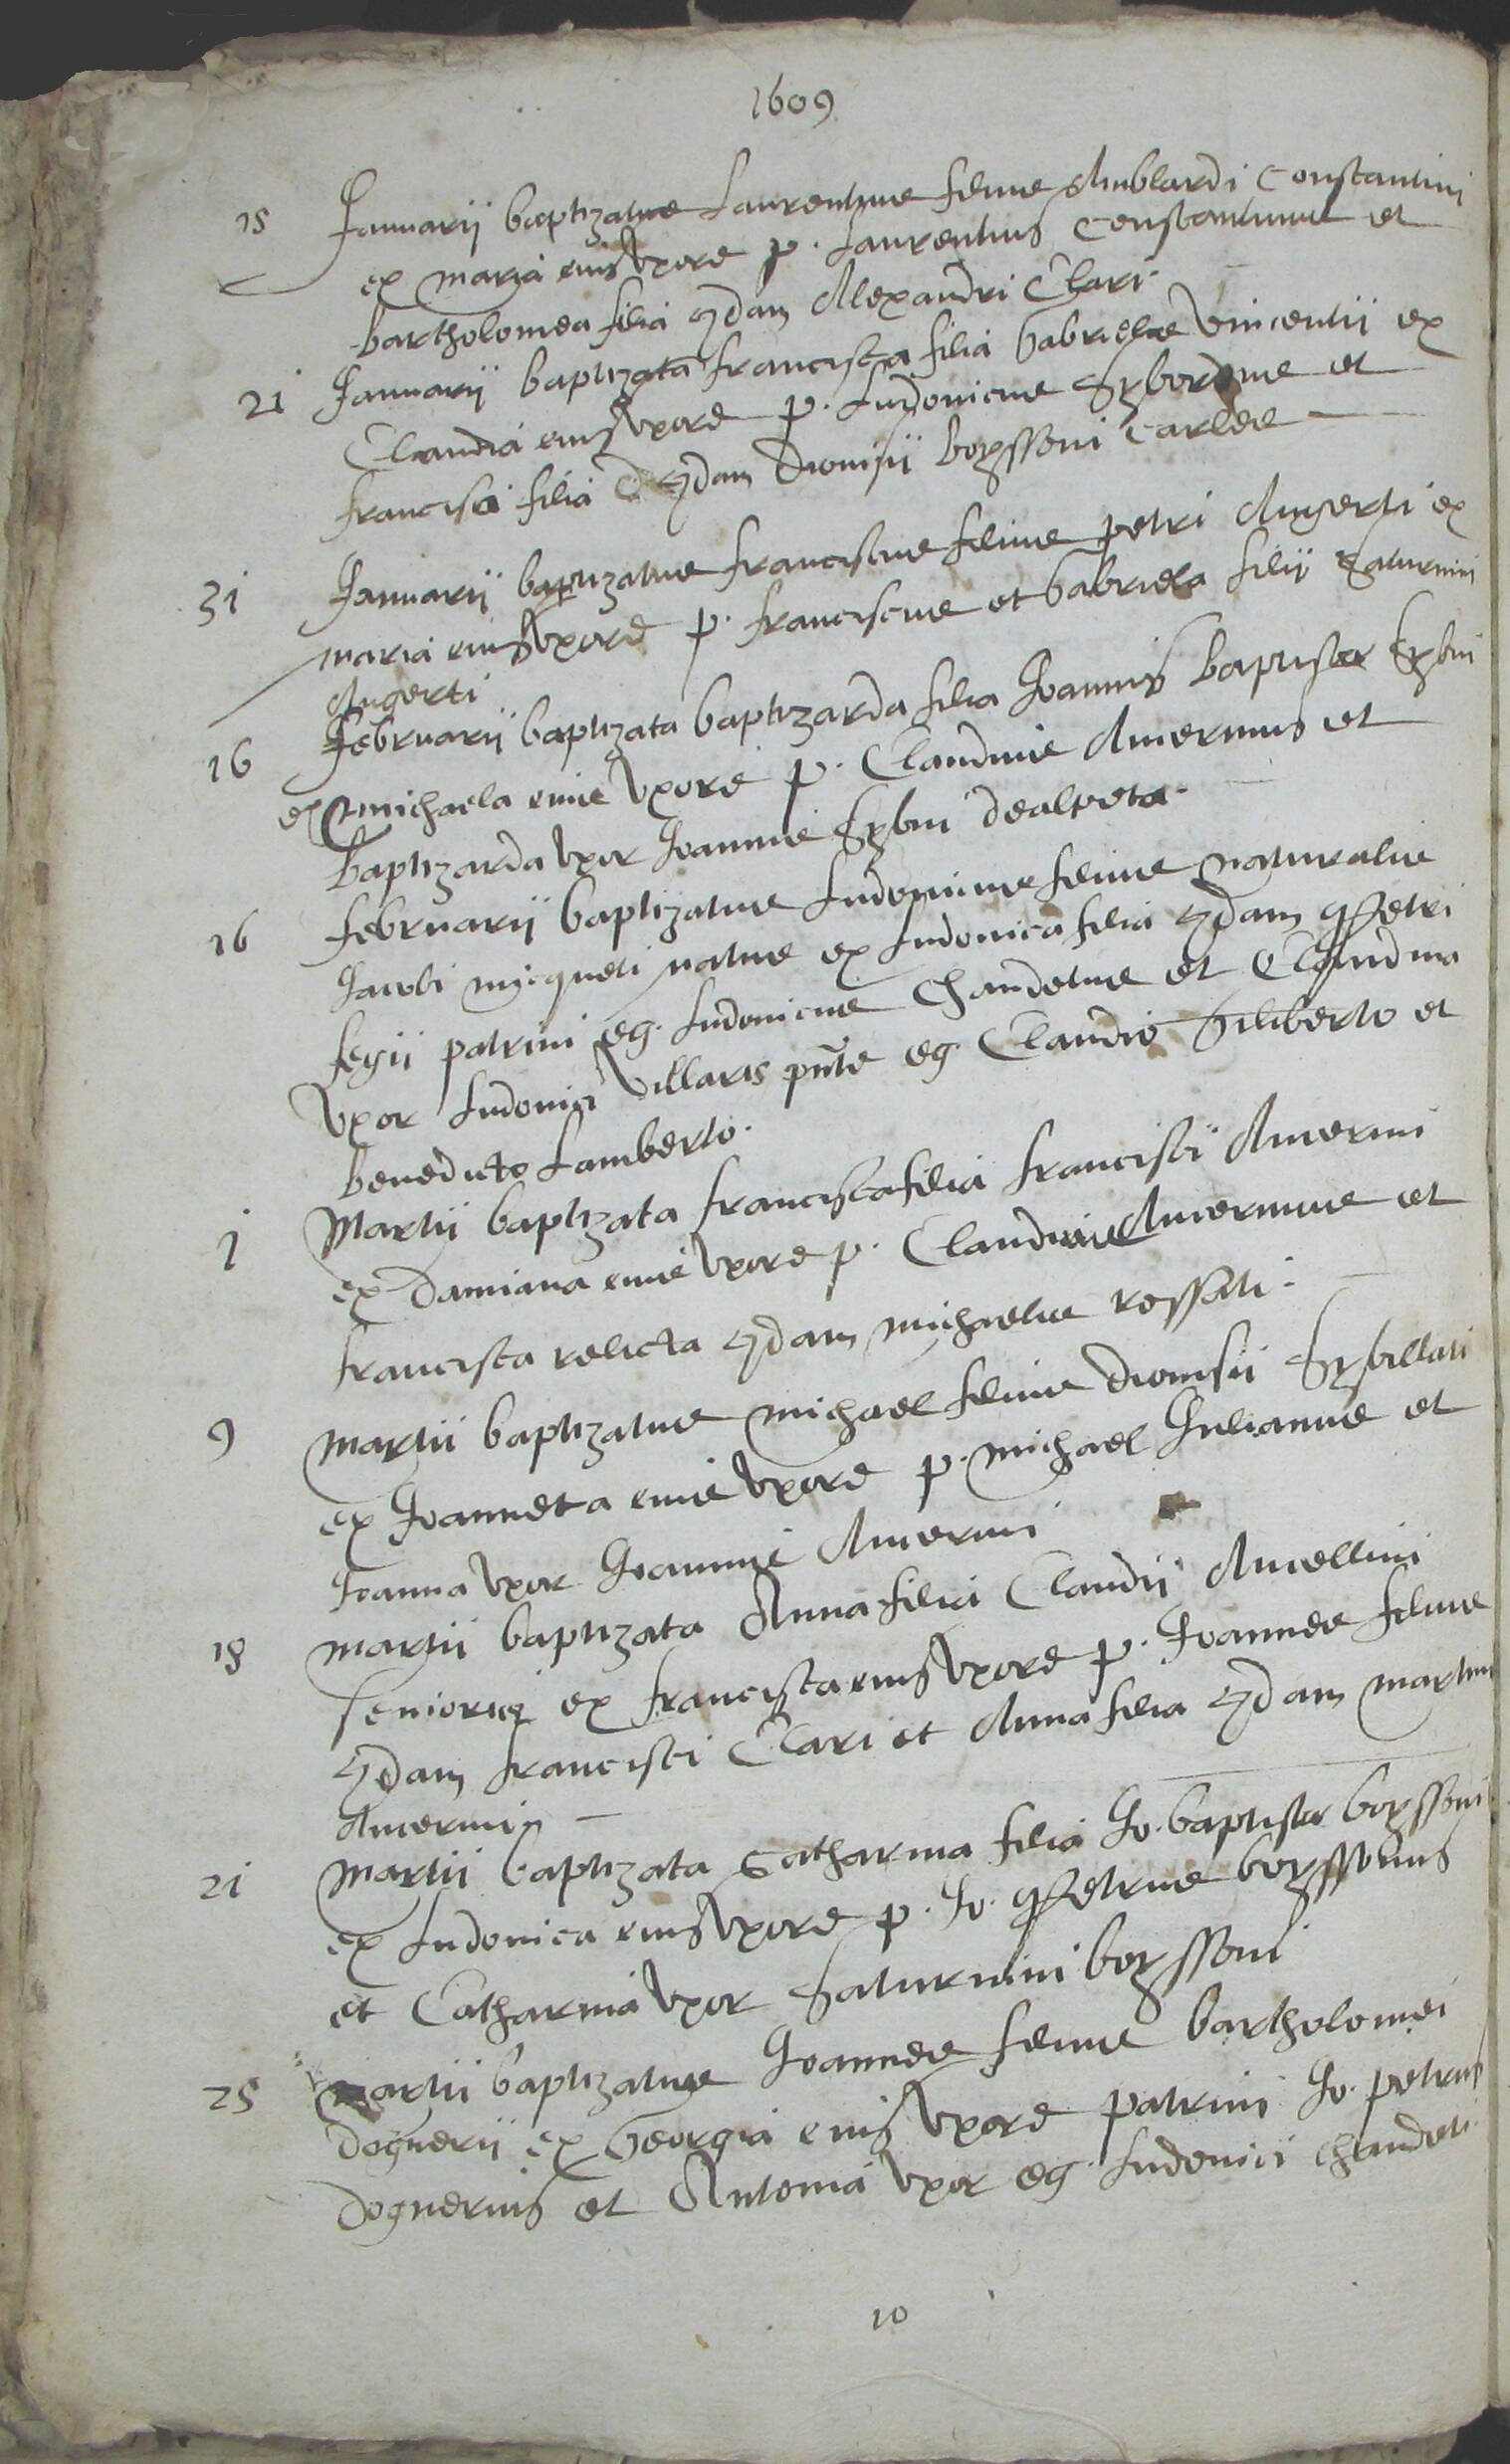 1609
15 Januarii baptizatus Laurentius filius Amblardi Constantini
ex maria eius uxore p. Laurentius Constantinus et
bartholomea filia qdam Alexandri Clari.
21 Januarii baptizata francisca filia Gabrielis vincentii ex
Claudia eius uxore p. Ludovicus et
francisca filia qdam Dionisii boyssoni Carles
31 Januarii baptizatus franciscus filius petri Augerti ex
maria eius uxore p. franciscus et Gabriela filii Saturnini
Augerti
16 Februarii baptizata baptizarda filia Joannis baptistae
ex michaela eius uxore p. Claudius Amerinus et
baptizarda uxor Joannis
16 februarii baptizatus Ludovicus filius naturalis
Jacobi micqueti natus ex Ludovica filia qdam Petri
patrini eg. Ludovicus Chandetus et Claudina
uxor Ludovici Villaris pnte eg Claudio Siliberto et
benedicto Lamberto.
1 Martii baptizata francisca filia francisci Amerini
ex Damiana eius uxore p. Claudius Amerinus et
francisca relicta qdam michaelis rossati.
9 martii baptizatus michael filius Dionisii Sybillati
ex Joanneta eius uxore p. michael Julianus et
Joanna uxor Joannis Amerini
18 martii baptizata Anna filia Claudii Amellini
senioris ex francisca eius uxore p. Joannes filius
qdam francisci Clari et Anna filia qdam martini
Amerini
21 martii baptizata Catharina filia Jo. baptistae boyssoni
ex Ludovica eius uxore p. Jo. Petrus boyssonus
et Catharina uxor Saturnini boyssoni
25 martii baptizatus Joannes filius bartholomei
dognerii ex Georgia eius uxore patrini Jo. petrus
dognerius et Antonia uxor eg. Ludovici chandeti
10